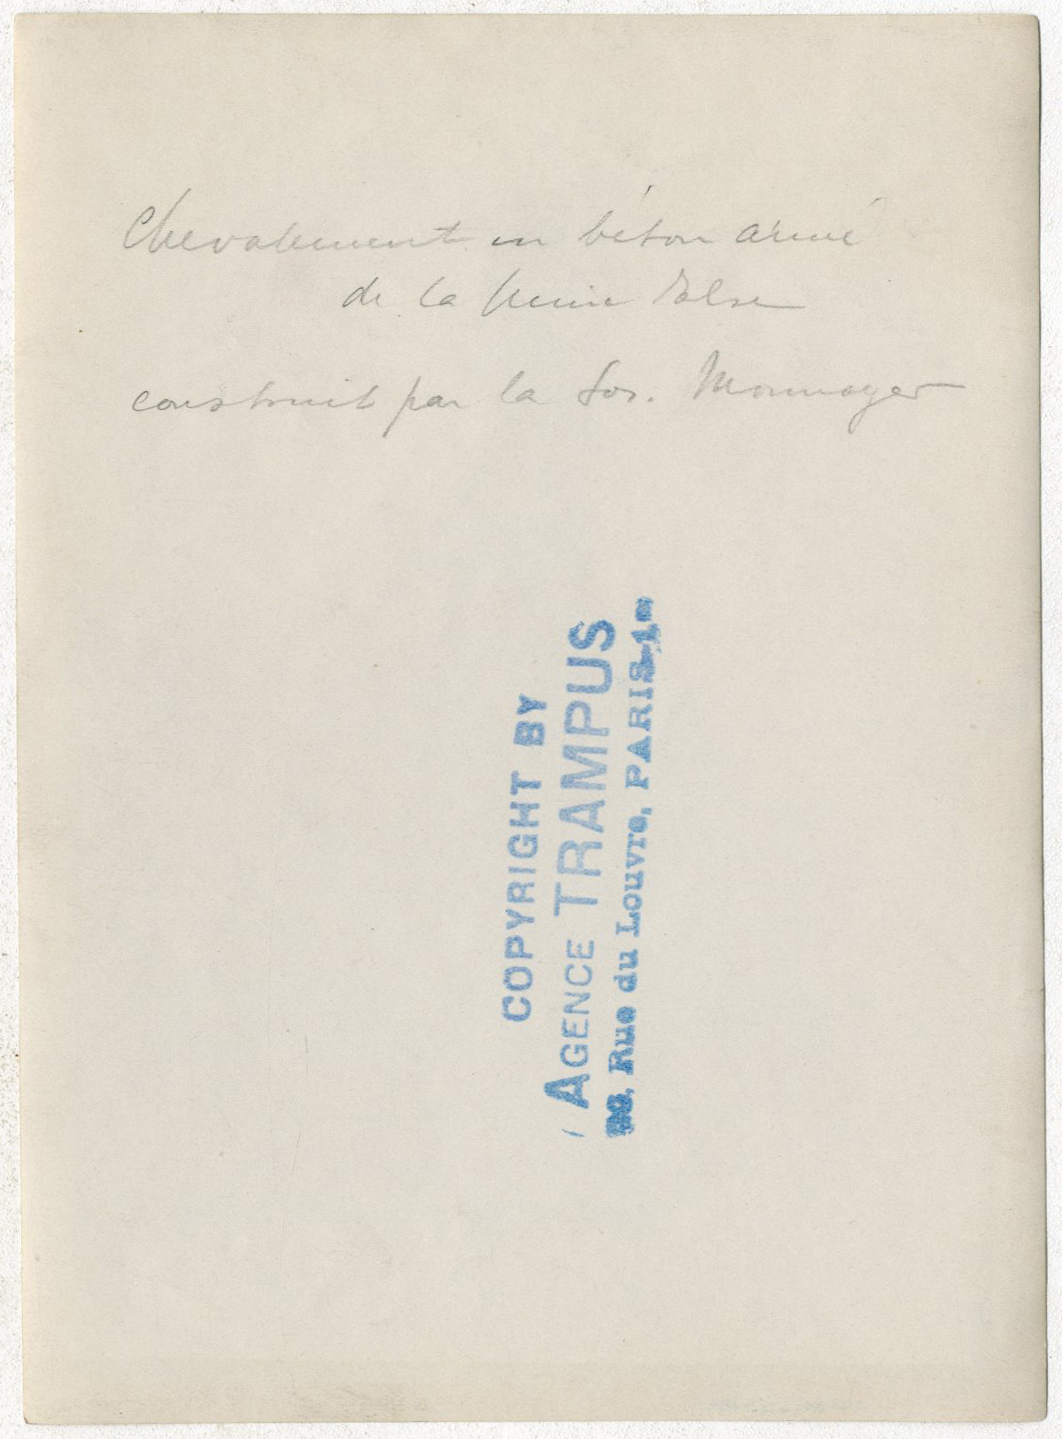 Chevalement en béton armé
de la Mine Else
construit par la Soc. Monnoyer
COPYRIGHT BY
AGENCE TRAMPUS
Rue du Louvre, PARIS-1er